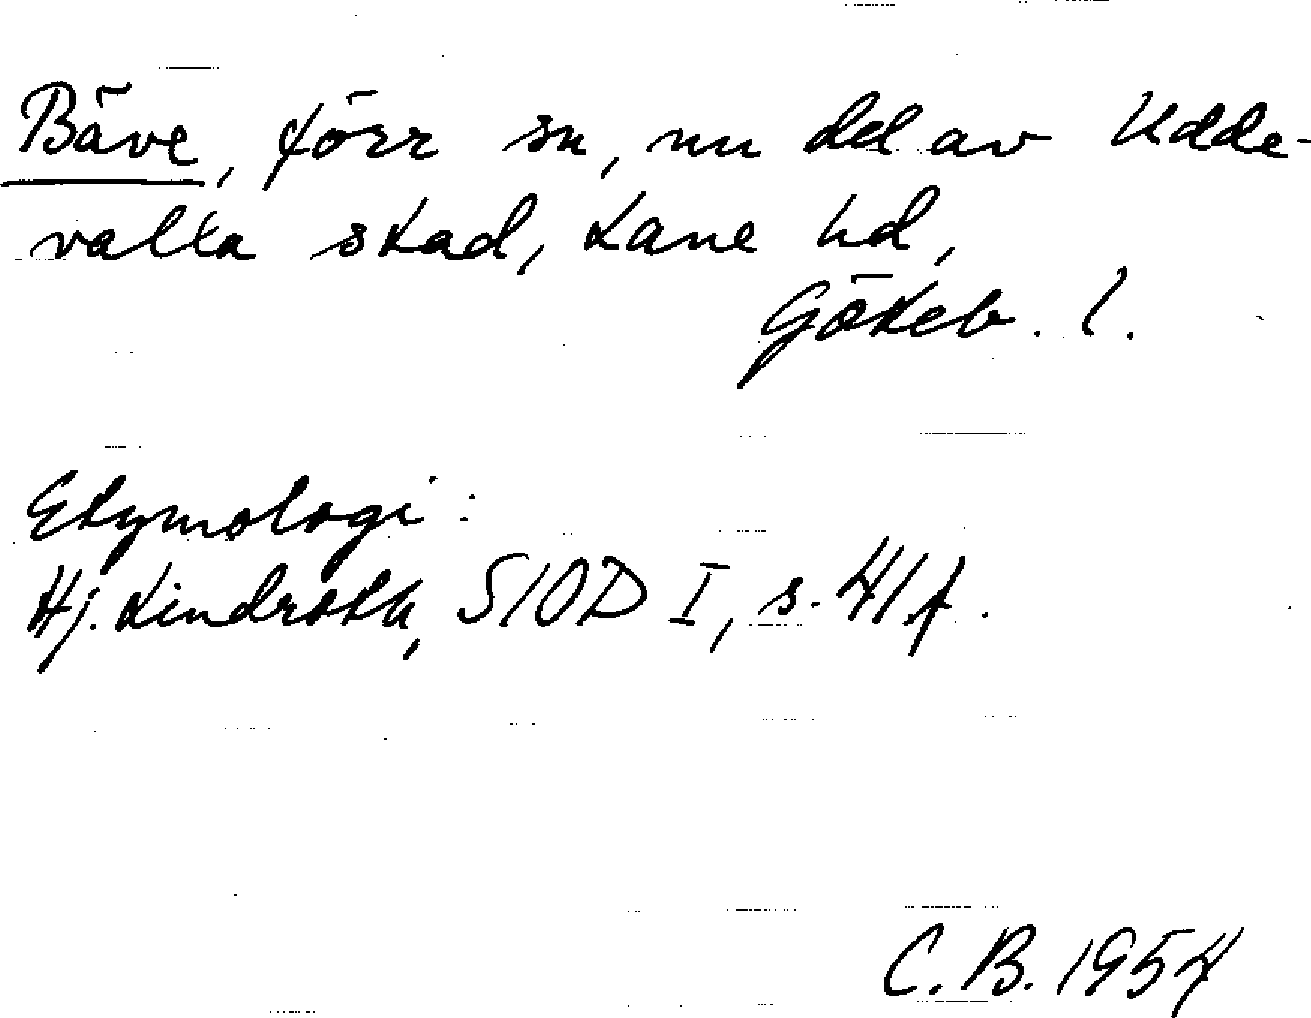 Bäve, förr sn, nu del av Udde-
valla stad, Lane hd,
Göteb. l.
Etymologi:
Hj. Lindroth, SIOD I, s. 41 f.
C. B. 1954